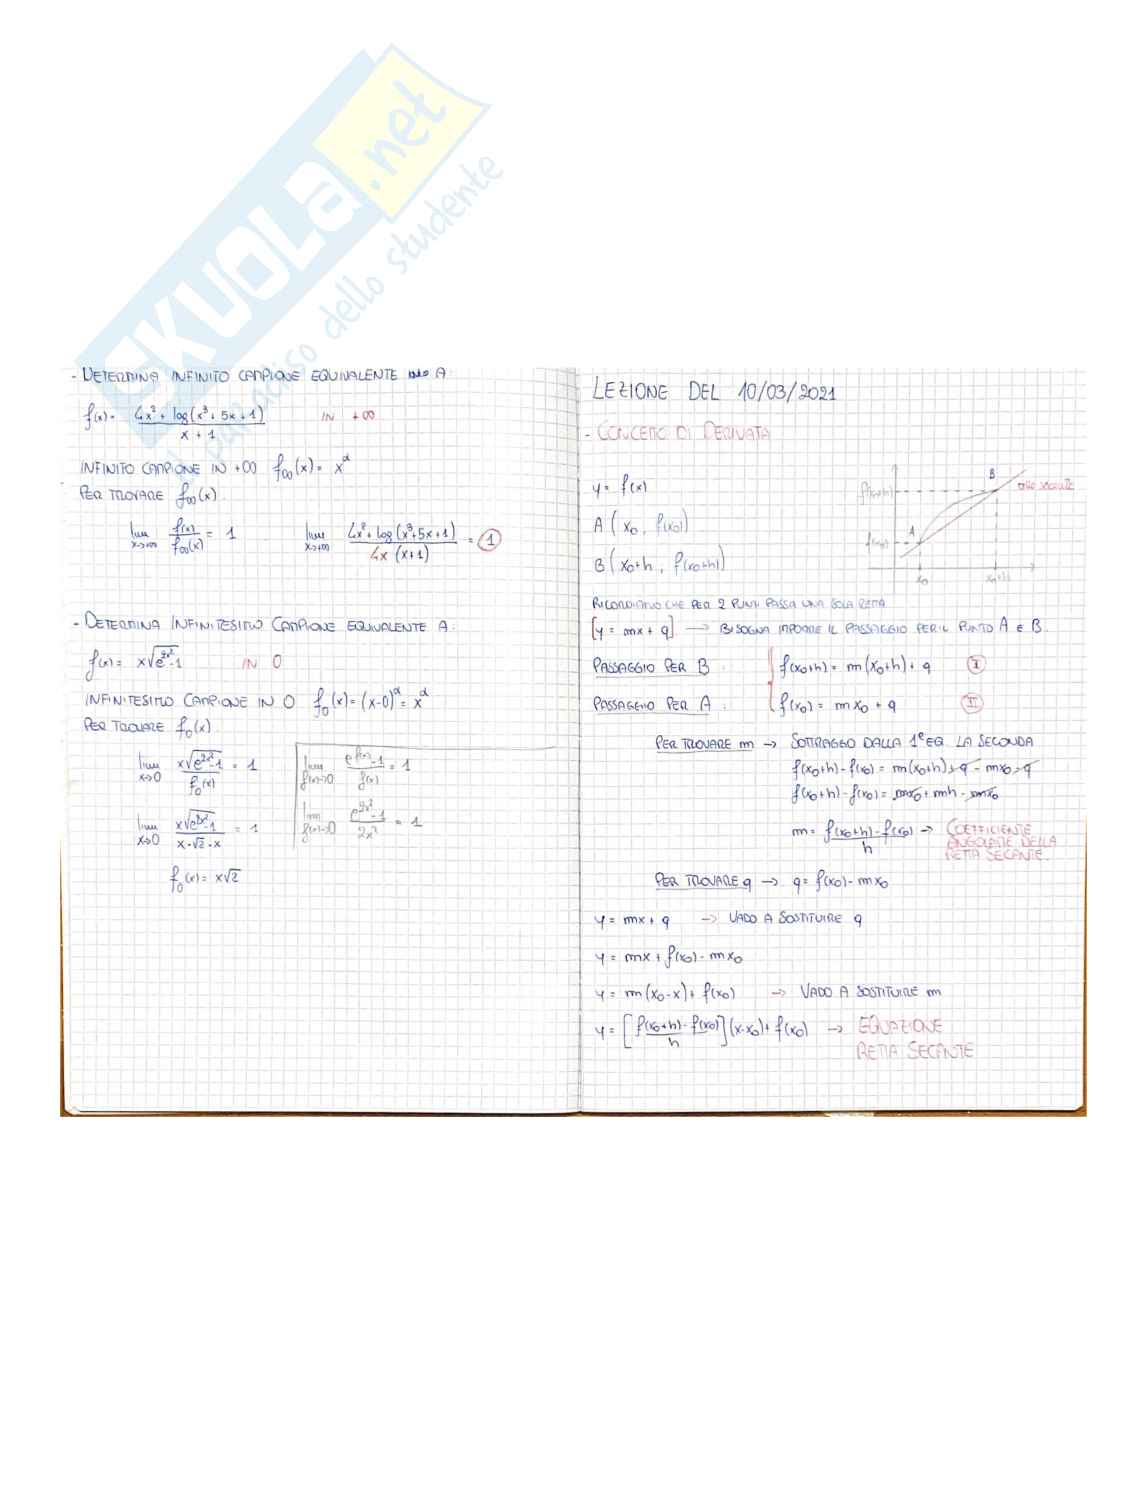 SKUOLA.net
il paradiso dello studente
- DETERMINA INFINITO CAMPIONE EQUIVALENTE A:
f(x) = (4x² + log(x³ + 5x + 1)) / (x + 1) IN +∞
INFINITO CAMPIONE IN +∞ f∞(x) = x^α
PER TROVARE f∞(x).
lim x→+∞ f(x)/f∞(x) = 1 lim x→+∞ (4x² + log(x³+5x+1)) / (4x (x+1)) = 1
- DETERMINA INFINITESIMO CAMPIONE EQUIVALENTE A:
f(x) = x√(e^(2x²)-1) IN 0
INFINITESIMO CAMPIONE IN 0 f₀(x) = (x-0)^α = x^α
PER TROVARE f₀(x)
lim x→0 x√(e^(2x²)-1) / f₀(x) = 1 lim f(x)→0 (e^(f(x))-1) / f(x) = 1
lim x→0 x√(e^(2x²)-1) / (x·√2·x) = 1 lim f(x)→0 (e^(2x²)-1) / 2x² = 1
f₀(x) = x√2
LEZIONE DEL 10/03/2021
- CONCETTO DI DERIVATA
y = f(x)
A (x₀, f(x₀))
B (x₀+h, f(x₀+h))
f(x₀+h)
f(x₀)
A
B
RETTA SECANTE
x₀
x₀+h
RICORDIAMO CHE PER 2 PUNTI PASSA UNA SOLA RETTA
[y = mx + q] → BISOGNA IMPORRE IL PASSAGGIO PER IL PUNTO A E B.
PASSAGGIO PER B : f(x₀+h) = m(x₀+h) + q I
PASSAGGIO PER A : f(x₀) = mx₀ + q II
PER TROVARE m → SOTTRAGGO DALLA 1ª EQ. LA SECONDA
f(x₀+h) - f(x₀) = m(x₀+h) + q - mx₀ - q
f(x₀+h) - f(x₀) = mx₀ + mh - mx₀
m = (f(x₀+h) - f(x₀)) / h → COEFFICIENTE
ANGOLARE DELLA
RETTA SECANTE.
PER TROVARE q → q = f(x₀) - mx₀
y = mx + q → VADO A SOSTITUIRE q
y = mx + f(x₀) - mx₀
y = m(x₀-x) + f(x₀) → VADO A SOSTITUIRE m
y = [(f(x₀+h) - f(x₀)) / h] (x-x₀) + f(x₀) → EQUAZIONE
RETTA SECANTE